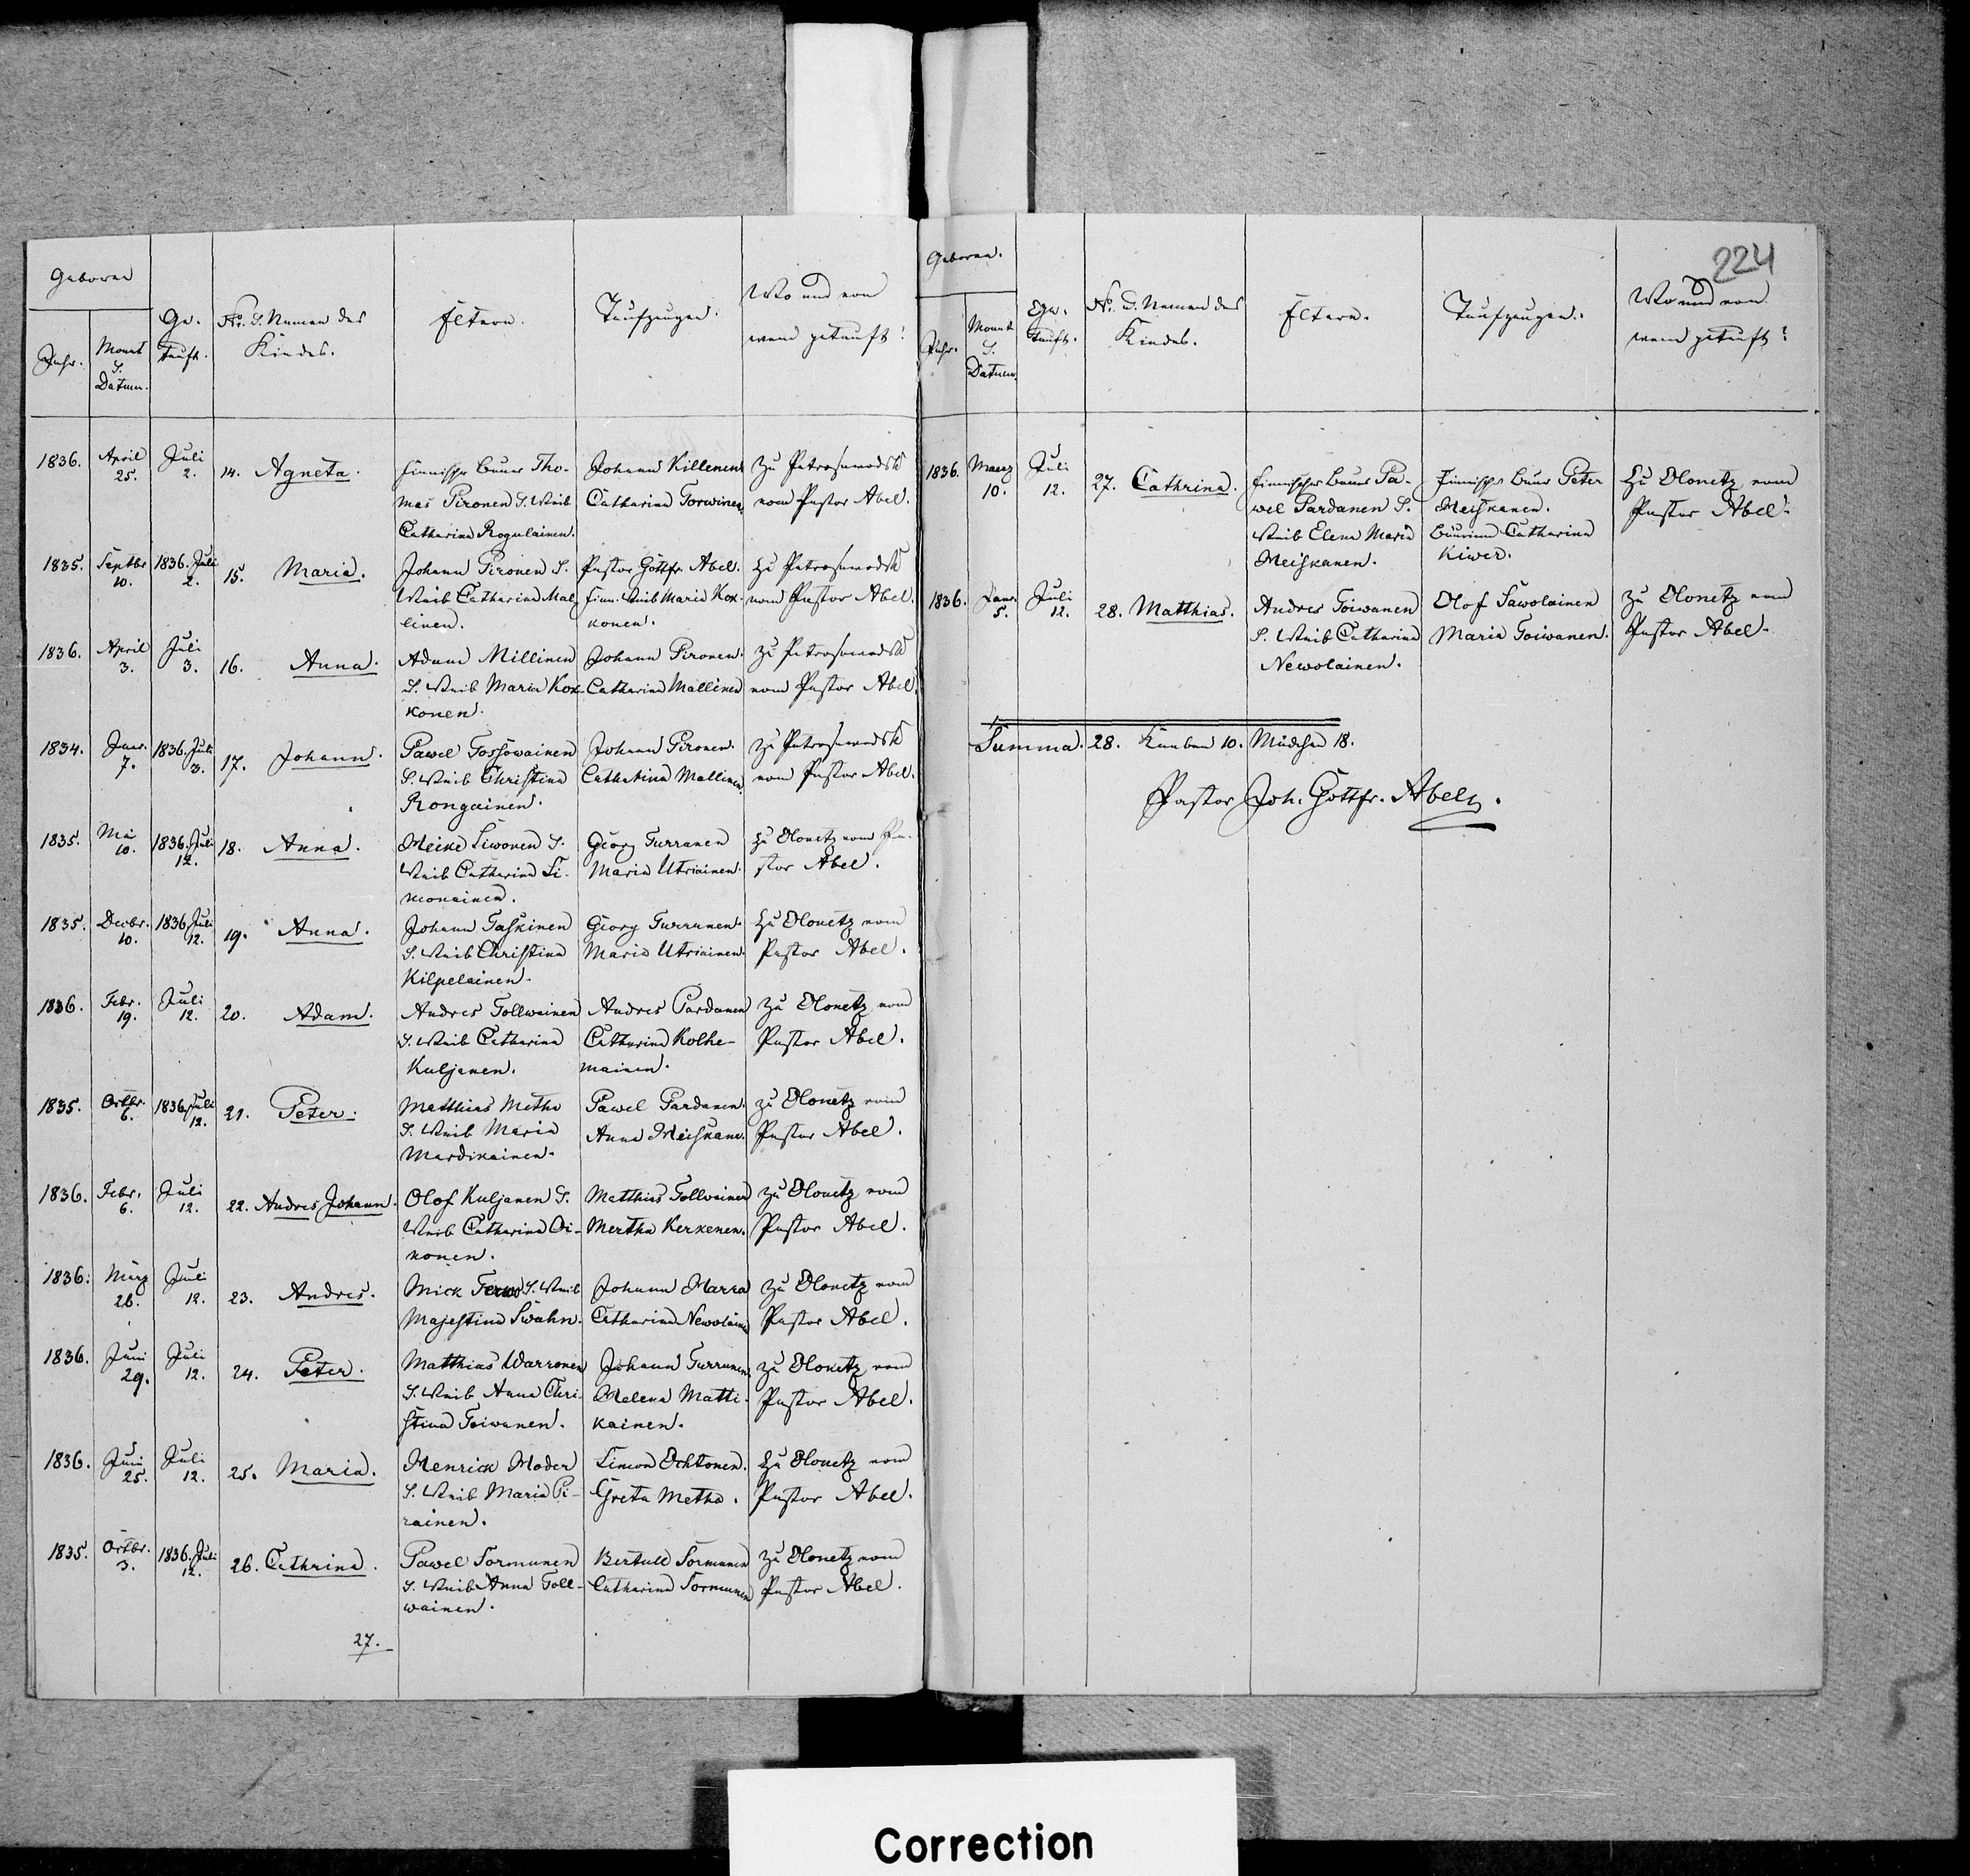 Geboren
Jahr.
Monat
u.
Datum.
Ge-
tauft.
No. u. Namen des
Kindes.
Eltern.
Taufzeugen.
Wo und von
wem getauft?
1836. April 25. Juli 2. 14. Agneta.
Finnischer Bauer Tho-
mas Pironen u. Weib
Catharina Rogulainen.
Johann Killenen
Catharina Torwinen.
Zu Petrosawodsk
vom Pastor Abel.
1835. Septbr 10. 1836. Juli 2. 15. Maria.
Johann Pironen u.
Weib Catharina Mal-
linen.
Pastor Gottfr. Abel.
Finn. Weib Maria Kok-
konen.
Zu Petrosawodsk
vom Pastor Abel.
1836. April 3. Juli 3. 16. Anna.
Adam Millinen
u. Weib Maria Kok-
konen.
Johann Pironen.
Catharina Mallinen
Zu Petrosawodsk
vom Pastor Abel.
1834. Janr. 7. 1836. Juli 3. 17. Johann.
Pawel Tossowainen
u. Weib Christina
Rongainen.
Johann Pironen.
Catharina Mallinen.
Zu Petrosawodsk
vom Pastor Abel.
1835. Mai 10. 1836. Juli 12. 18. Anna.
Heike Siwonen u.
Weib Catharina Si-
monainen.
Georg Turranen
Maria Utriainen.
Zu Olonetz vom Pa-
stor Abel.
1835. Decbr. 10. 1836 Juli 12. 19. Anna.
Johann Taskinen
u. Weib Christina
Kilpelainen.
Georg Turrunen.
Maria Utriainen.
Zu Olonetz vom
Pastor Abel.
1836. Febr. 19. Juli 12. 20. Adam.
Andres Tollwainen
u. Weib Catharina
Kuljanen.
Andres Pardanen
Catharina Kolhe-
mainen.
Zu Olonetz vom
Pastor Abel.
1835. Octbr. 6. 1836. Juli 12. 21. Peter.
Matthias Metho
u. Weib Maria
Mardikainen.
Pawel Pardanen.
Anna Heiskanen.
zu Olonetz vom
Pastor Abel.
1836. Febr. 6. Juli 12. 22. Andres Johann.
Olof Kuljanen u.
Weib Catharina Oi-
nonen.
Matthias Tollwainen
Mertha Kerkenen.
zu Olonetz vom
Pastor Abel.
1836. März 26. Juli 12. 23. Andres.
Mick u. Weib
Majestina Swahn.
Johann Harra
Catharina Newolainen
Zu Olonetz vom
Pastor Abel.
1836. Juni 29. Juli 12. 24. Peter.
Matthias Warronen
u. Weib Anna Chri-
stina Toiwanen.
Johann Turrunen.
Helena Matti-
kainen.
zu Olonetz vom
Pastor Abel.
1836. Juni 25. Juli 12. 25. Maria.
Henrick Moder
u. Weib Maria Pi-
rainen.
Simon Ochtonen.
Greta Metho.
Zu Olonetz vom
Pastor Abel.
1835. Octbr. 3. 1836. Juli 12. 26. Cathrina.
Pawel Sormunen
u. Weib Anna Toll-
wainen.
Bertull Sormunen
Catharina Sormunen
zu Olonetz vom
Pastor Abel.
27.
224
Geboren.
Jahr.
Monat
u.
Datum.
Ge-
tauft.
No. u. Namen des
Kindes.
Eltern.
Taufzeugen.
Wo und von
wem getauft?
1836. Maerz 10. Juli 12. 27. Cathrina.
Finnischer Bauer Pa-
wel Pardanen u.
Weib Elena Maria
Heiskanen.
Finnischer Bauer Peter
Heiskanen.
Bäuerin Catharina
Kiwer.
Zu Olonetz vom
Pastor Abel.
1836. Janr. 5. Juli 12. 28. Matthias.
Andres Toiwanen
u. Weib Catharina
Newolainen.
Olof Sawolainen
Maria Toiwanen.
Zu Olonetz vom
Pastor Abel.
Summa. 28. Knaben 10. Mädchen 18.
Pastor Joh. Gottfr. Abel.
Correction